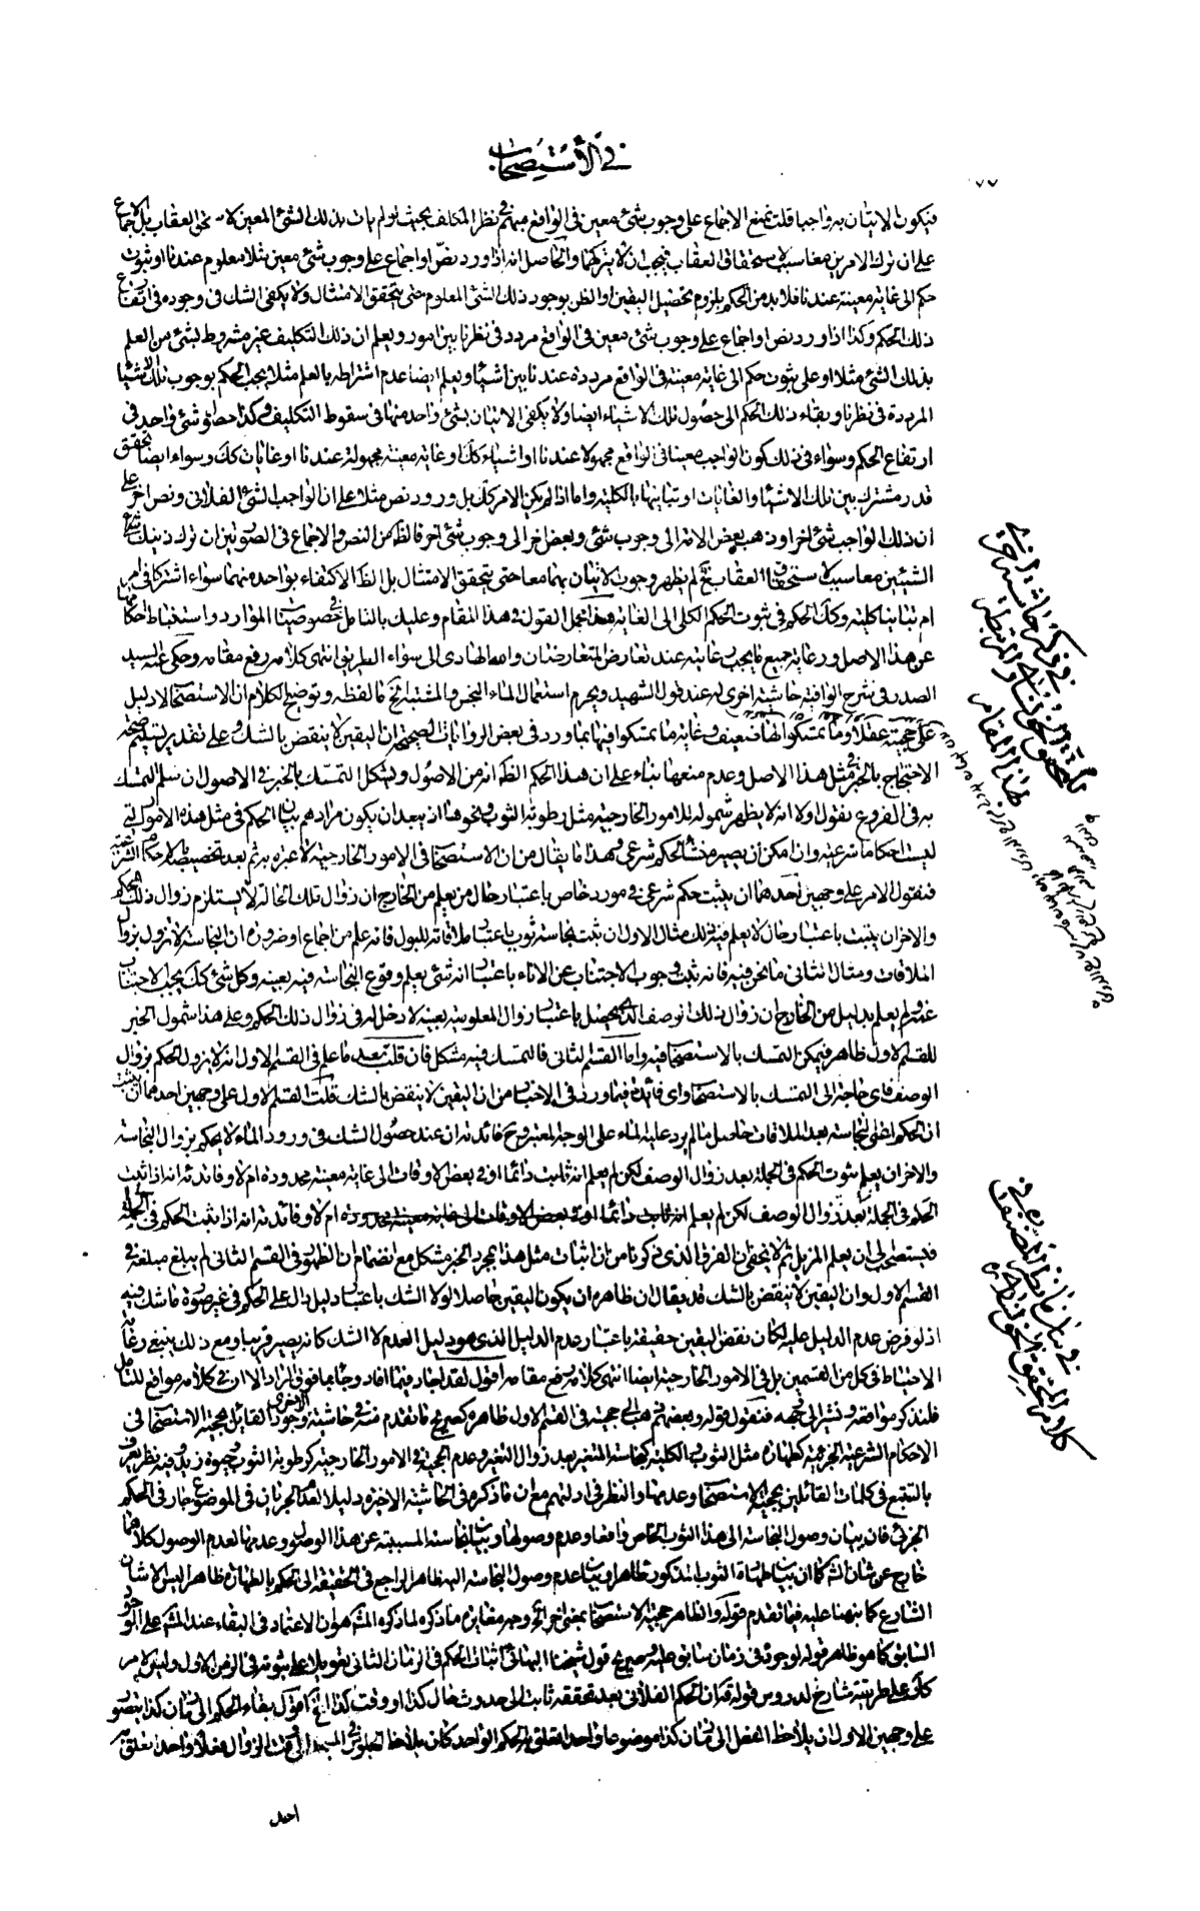 في الاستصحاب
٧٧
فيكون الاتيان به واجبا قلت نمنع الاجماع على وجوب شئ معين في الواقع مبهم في نظر المكلف بحيث لو لم يات بذلك الشئ المعين لاستحق العقاب بل الاجماع
على ان ترك الامرين معا سبب لاستحقاق العقاب فيجب ان لا يتركهما والحاصل انه اذا ورد نص او اجماع على وجوب شئ معين مثلا معلوم عندنا او ثبوت
حكم الى غاية معينة عندنا فلا بد من الحكم بلزوم تحصيل اليقين او الظن بوجود ذلك الشئ المعلوم حتى يتحقق الامتثال ولا يكفي الشك في وجوده في ارتفاع
ذلك الحكم وكذا اذا ورد نص او اجماع على وجوب شئ معين في الواقع مردد في نظرنا بين امور ويعلم ان ذلك التكليف غير مشروط بشئ من العلم
بذلك الشئ مثلا او على ثبوت حكم الى غاية معينة في الواقع مرددة عندنا بين اشياء ويعلم ايضا عدم اشتراطه بالعلم مثلا يجب الحكم بوجوب تلك الاشياء
المرددة في نظرنا وبقاء ذلك الحكم الى حصول تلك الاشياء ايضا ولا يكفي الاتيان بشئ واحد منها في سقوط التكليف وكذا حصول شئ واحد في
ارتفاع الحكم وسواء في ذلك كون الواجب معينا في الواقع مجهولا عندنا او اشياء كك او غاية معينة مجهولة عندنا او غايات كك وسواء ايضا تحقق
قدر مشترك بين تلك الاشياء والغايات او تباينها بالكلية واما اذا لم يكن الامر كك بل ورد نص مثلا على ان الواجب الشئ الفلاني ونص اخر على
ان ذلك الواجب شئ اخر او ذهب بعض الامة الى وجوب شئ وبعض اخر الى وجوب شئ اخر فالظ من النص والاجماع في الصورتين ان ترك ذينك
الشيئين معا سبب لاستحقاق العقاب فح لم يظهر وجوب الاتيان بهما معا حتى يتحقق الامتثال بل الظ الاكتفاء بواحدة منهما سواء اشتركا في امر
ام تباينا كلية وكك الحكم في ثبوت الحكم الكلي الى الغاية هذا مجمل القول في هذا المقام وعليك بالتامل في خصوصيات الموارد واستنباط احكامها
عن هذا الاصل ورعاية جميع ما يجب رعايته عند تعارض المتعارضات والله الهادي الى سواء الطريق انتهى كلامه رفع مقامه وحكى عنه السيد
الصدر في شرح الوافية حاشية اخرى له عند قول الشهيد ويحرم استعمال الماء النجس والمشتبه الخ ما لفظه وتوضيح الكلام ان الاستصحاب لا دليل
على حجيته عقلا وما تمسكوا لها ضعيف وغاية ما تمسكوا فيها بما ورد في بعض الروايات الصحيحة ان اليقين لا ينقض بالشك وعلى تقدير تسليم صحة
الاحتجاج بالخبر في مثل هذا الاصل وعدم منعها بناء على ان هذا الحكم الظ انه من الاصول ويشكل التمسك بالخبر في الاصول ان سلم التمسك
به في الفروع نقول اولا انه لا يظهر شموله للامور الخارجية مثل رطوبة الثوب ونحوها اذ يبعد ان يكون مرادهم بيان الحكم في مثل هذه الامور التي
ليست احكاما شرعية وان امكن ان يصير منشأ لحكم شرعي وهذا ما يقال من ان الاستصحاب في الامور الخارجية لا عبرة به ثم بعد تخصيصه بالاحكام الشرعية
فنقول الامر على وجهين احدهما ان يثبت حكم شرعي في مورد خاص باعتبار حال من يعلم من الخارج ان زوال تلك الحالة لا يستلزم زوال ذلك الحكم
والاخر ان يثبت باعتبار حال لا يعلم فيه ذلك مثال الاول ان ثبت نجاسة ثوب باعتبار ملاقاته للبول فانه علم من اجماع او ضرورة ان النجاسة لا تزول بزوال
الملاقات ومثال الثاني ما نحن فيه فانه ثبت وجوب الاجتناب عن الاناء باعتبار انه شئ يعلم وقوع النجاسة فيه بعينه وكل شئ كك يجب الاجتناب
عنه ولم يعلم بدليل من الخارج ان زوال ذلك الوصف الذي يحصل باعتبار زوال المعلومية بعينه لا دخل له في زوال ذلك الحكم وعلى هذا شمول الخبر
للقسم الاول ظاهر فيمكن التمسك بالاستصحاب فيه واما القسم الثاني فالتمسك فيه مشكل فان قلت بعد ما علم في القسم الاول انه لا يزول الحكم بزوال
الوصف فاي حاجة الى التمسك بالاستصحاب واي فائدة فيما ورد في الاخبار من ان اليقين لا ينقض بالشك قلت القسم الاول على وجهين احدهما ان يثبت
ان الحكم اعني النجاسة بعد الملاقات حاصل ما لم يرد عليه الماء على الوجه المعتبر وح فائدته ان عند حصول الشك في ورود الماء لا يحكم بزوال النجاسة
والاخر ان يعلم ثبوت الحكم في الجملة بعد زوال الوصف لكن لم يعلم انه ثابت دائما او في بعض الاوقات الى غاية معينة محدودة ام لا وفائدته انه اذا ثبت
الحكم في الجملة بعد زوال الوصف لكن لم يعلم انه ثابت دائما او في بعض الاوقات الى غاية معينة محدودة ام لا وفائدته انه اذا ثبت الحكم في الجملة
فيستصحب الى ان يعلم المزيل ثم لا يخفى ان الفرق الذي ذكرنا من ان اثبات مثل هذا بمجرد الخبر مشكل مع انضمام ان الظهور في القسم الثاني لم يبلغ مبلغه في
القسم الاول وان اليقين لا ينقض بالشك قد يقال ان ظاهره ان يكون اليقين حاصلا لولا الشك باعتبار دليل دال على الحكم في غير صورة ما شك فيه
اذ لو فرض عدم الدليل عليه لكان نقض اليقين حقيقة باعتبار عدم الدليل الذي هو دليل العدم لا الشك كانه يصير قريبا ومع ذلك ينبغي رعاية
الاحتياط في كل من القسمين بل في الامور الخارجية ايضا انتهى كلامه رفع مقامه اقول لقد اجاد فيما افاد وجاء بما فوق المراد الا ان في كلامه مواقع للتامل
فلنذكر مواقعه ونشير الى وجهه فنقول قوله وبعضهم ذهب الى حجيته في القسم الاول ظاهره كصريح ما تقدم منه في حاشيته الاخرى وجود القائل بحجية الاستصحاب في
الاحكام الشرعية الجزئية كطهارة مثل الثوب والكلية كنجاسة المتغير بعد زوال التغير وعدم الحجية في الامور الخارجية كرطوبة الثوب وحيوة زيد وفيه نظر يعرف
بالتتبع في كلمات القائلين بحجية الاستصحاب وعدمها والنظر في ادلتهم مع ان ما ذكره في الحاشية الاخيرة دليلا لعدم الجريان في الموضوع جار في الحكم
الجزئي فان بيان وصول النجاسة الى هذا الثوب الخاص واقعا وعدم وصولها وبيان نجاسته المسببة عن هذا الوصول وعدمها لعدم الوصول كلاهما
خارج عن شان الشارع كما ان بيان طهارة الثوب المذكور ظاهرا وبيان عدم وصول النجاسة اليه ظاهرا الراجع في الحقيقة الى الحكم بالطهارة ظاهرا ليس الا شان
الشارع كما نبهنا عليه فيما تقدم قوله والظاهر حجية الاستصحاب بمعنى اخر الخ وجه مغايرة ما ذكره لما ذكره المشهور ان الاعتماد في البقاء عند المشهور على الوجود
السابق كما هو ظاهر قوله لوجوده في زمان سابق عليه وصريح قول شيخنا البهائي اثبات الحكم في الزمان الثاني تعويلا على ثبوته في الزمن الاول وليس الامر
كك على طريقة شارح الدروس قوله قده ان الحكم الفلاني بعد تحققه ثابت الى حدوث حال كذا او وقت كذا الخ اقول بقاء الحكم الى زمان كذا يتصور
على وجهين الاول ان يلاحظ الفعل الى زمان كذا موضوعا واحدا تعلق به الحكم الواحد كان يلاحظ الجلوس في المسجد الى وقت الزوال فعلا واحدا تعلق به
احد